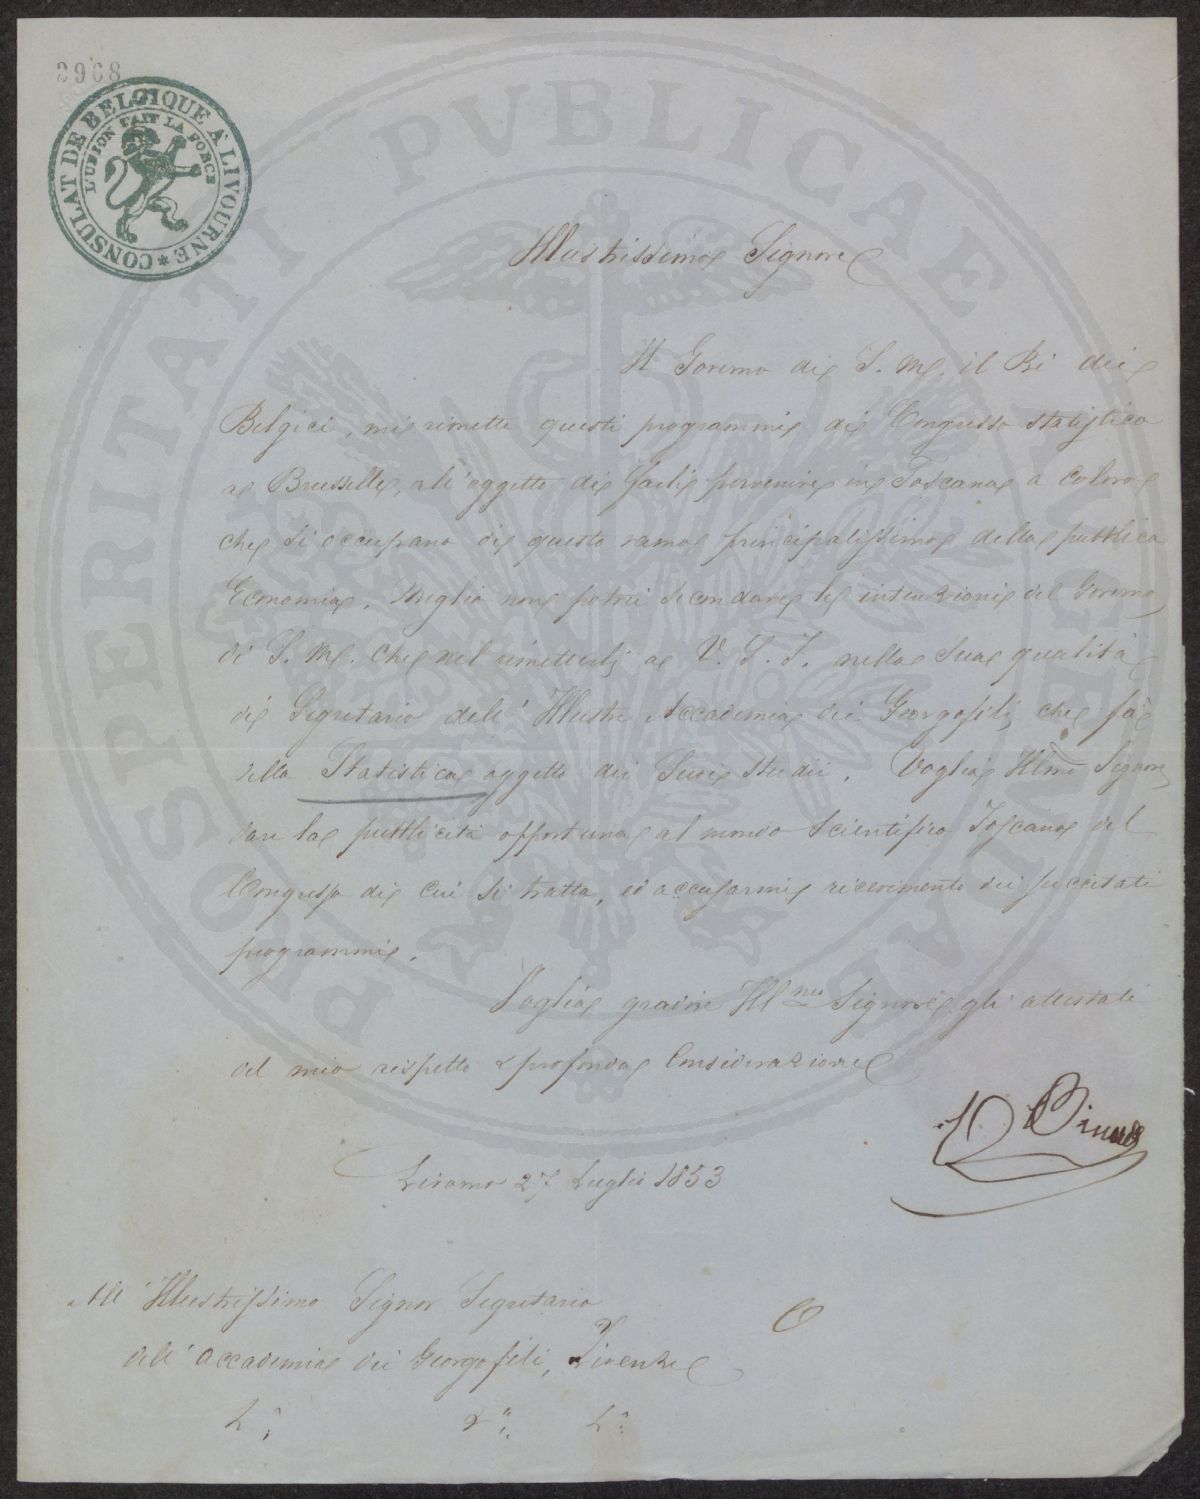 2968
CONSULAT DE BELGIQUE À LIVOURNE
L'UNION FAIT LA FORCE
PROSPERITATI PVBLICAE AVGENDAE
Illustrissimo Signore
Il Governo di S. M. il Rè dei
Belgici, mi rimette questi programmi di Congresso statistico
a Brusselle, all'oggetto di farli pervenire in Toscana a coloro
che si occupano di questo ramo principalissimo della pubblica
Economia. Meglio non potrei secondare le intenzioni del Governo
di S. M. che nel rimetterli a V. S. I. nella sua qualità
di Segretario dell'Illustre Accademia dei Georgofili, che fà
della Statistica oggetto dei Suoi studii. Voglia Illmo Signore
dare la pubblicità opportuna al mondo Scientifico Toscano del
Congresso di cui si tratta, ed accusarmi ricevimento dei succitati
programmi.
Voglia gradire Illmo Signore gli attestati
del mio rispetto e profonda Considerazione
Livorno 27 Luglio 1853
All'Illustrissimo Signor Segretario
dell'Accademia dei Georgofili, Firenze